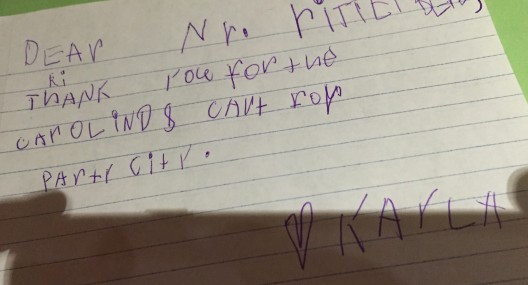 DEAr Nr. riTTEr
Ki
THANK rou For tHe
CAROLIND$ CArt ror
PArtr Citr.
♡ KArLA